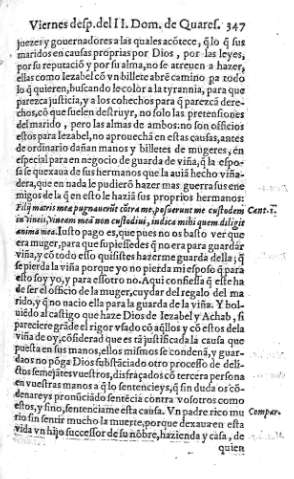 Viernes desp. del II. Dom. de Quares. 347
juezes y gouernadores a las quales acõtece, q̃ lo q̃ sus
maridos en causas proprias por Dios, por las leyes,
por su reputació y por su alma, no se atreuen a hazer,
ellas como Iezabel có vn billete abrẽ camino pa todo
lo q̃ quieren, buscando le color a la tyrannia, para que
parezca justicia, y a los cohechos para q̃ parezcã dere-
chos, có que suelen destruyr, no solo las pretensiones
del marido, pero las almas de ambos: no son officios
estos para Iezabel, no aprouechã en estas causas, antes
de ordinario dañan manos y billetes de mugeres, en
especial para en negocio de guarda de viña, q̃ la espo-
sa se quexaua de sus hermanos que la auiã hecho viña-
dera, que en nada le pudierõ hazer mas guerra sus ene
migos de la q̃ en esto le haziã sus proprios hermanos:
Filij matris meæ pugnauerũt cõtra me, posuerunt me custodem
in vineis, Vineam meã non custodiui, indica mihi quem diligit
anima mea. Iusto pago es, que pues no os basto ver que
era muger, para que supiessedes q̃ no era para guardar
viña, y có todo esso quisistes hazerme guarda della; q̃
se pierda la viña porque yo no pierda mi esposo q̃ para
esto soy yo, y para essotro no. Aqui confiessa q̃ este ha
de ser el officio de la muger, cuydar del regalo del ma
rido, y q̃ no nacio ella para la guarda de la viña. Y bol-
uiẽdo al castigo que haze Dios de Iezabel y Achab, si
pareciere grãde el rigor vsado có aq̃llos y có estos dela
viña de oy, cõsiderad que es tã justificada la causa que
puesta en sus manos, ellos mismos se condenã, y guar-
daos no põga Dios substãciado otro processo de deli-
ctos semejãtes vuestros, disfraçados có tercera persona
en vuestras manos a q̃ lo sentencieys, q̃ sin duda os cõ-
denareys pronũciãdo sentẽcia contra vosotros como
estos, y sino, sentenciame esta causa. Vn padre rico mu
rio sin sentir mucho la muerte, porque dexaua en esta
vida vn hijo successor de su nõbre, hazienda y casa, de
quien
Cant. 1.
Compar.